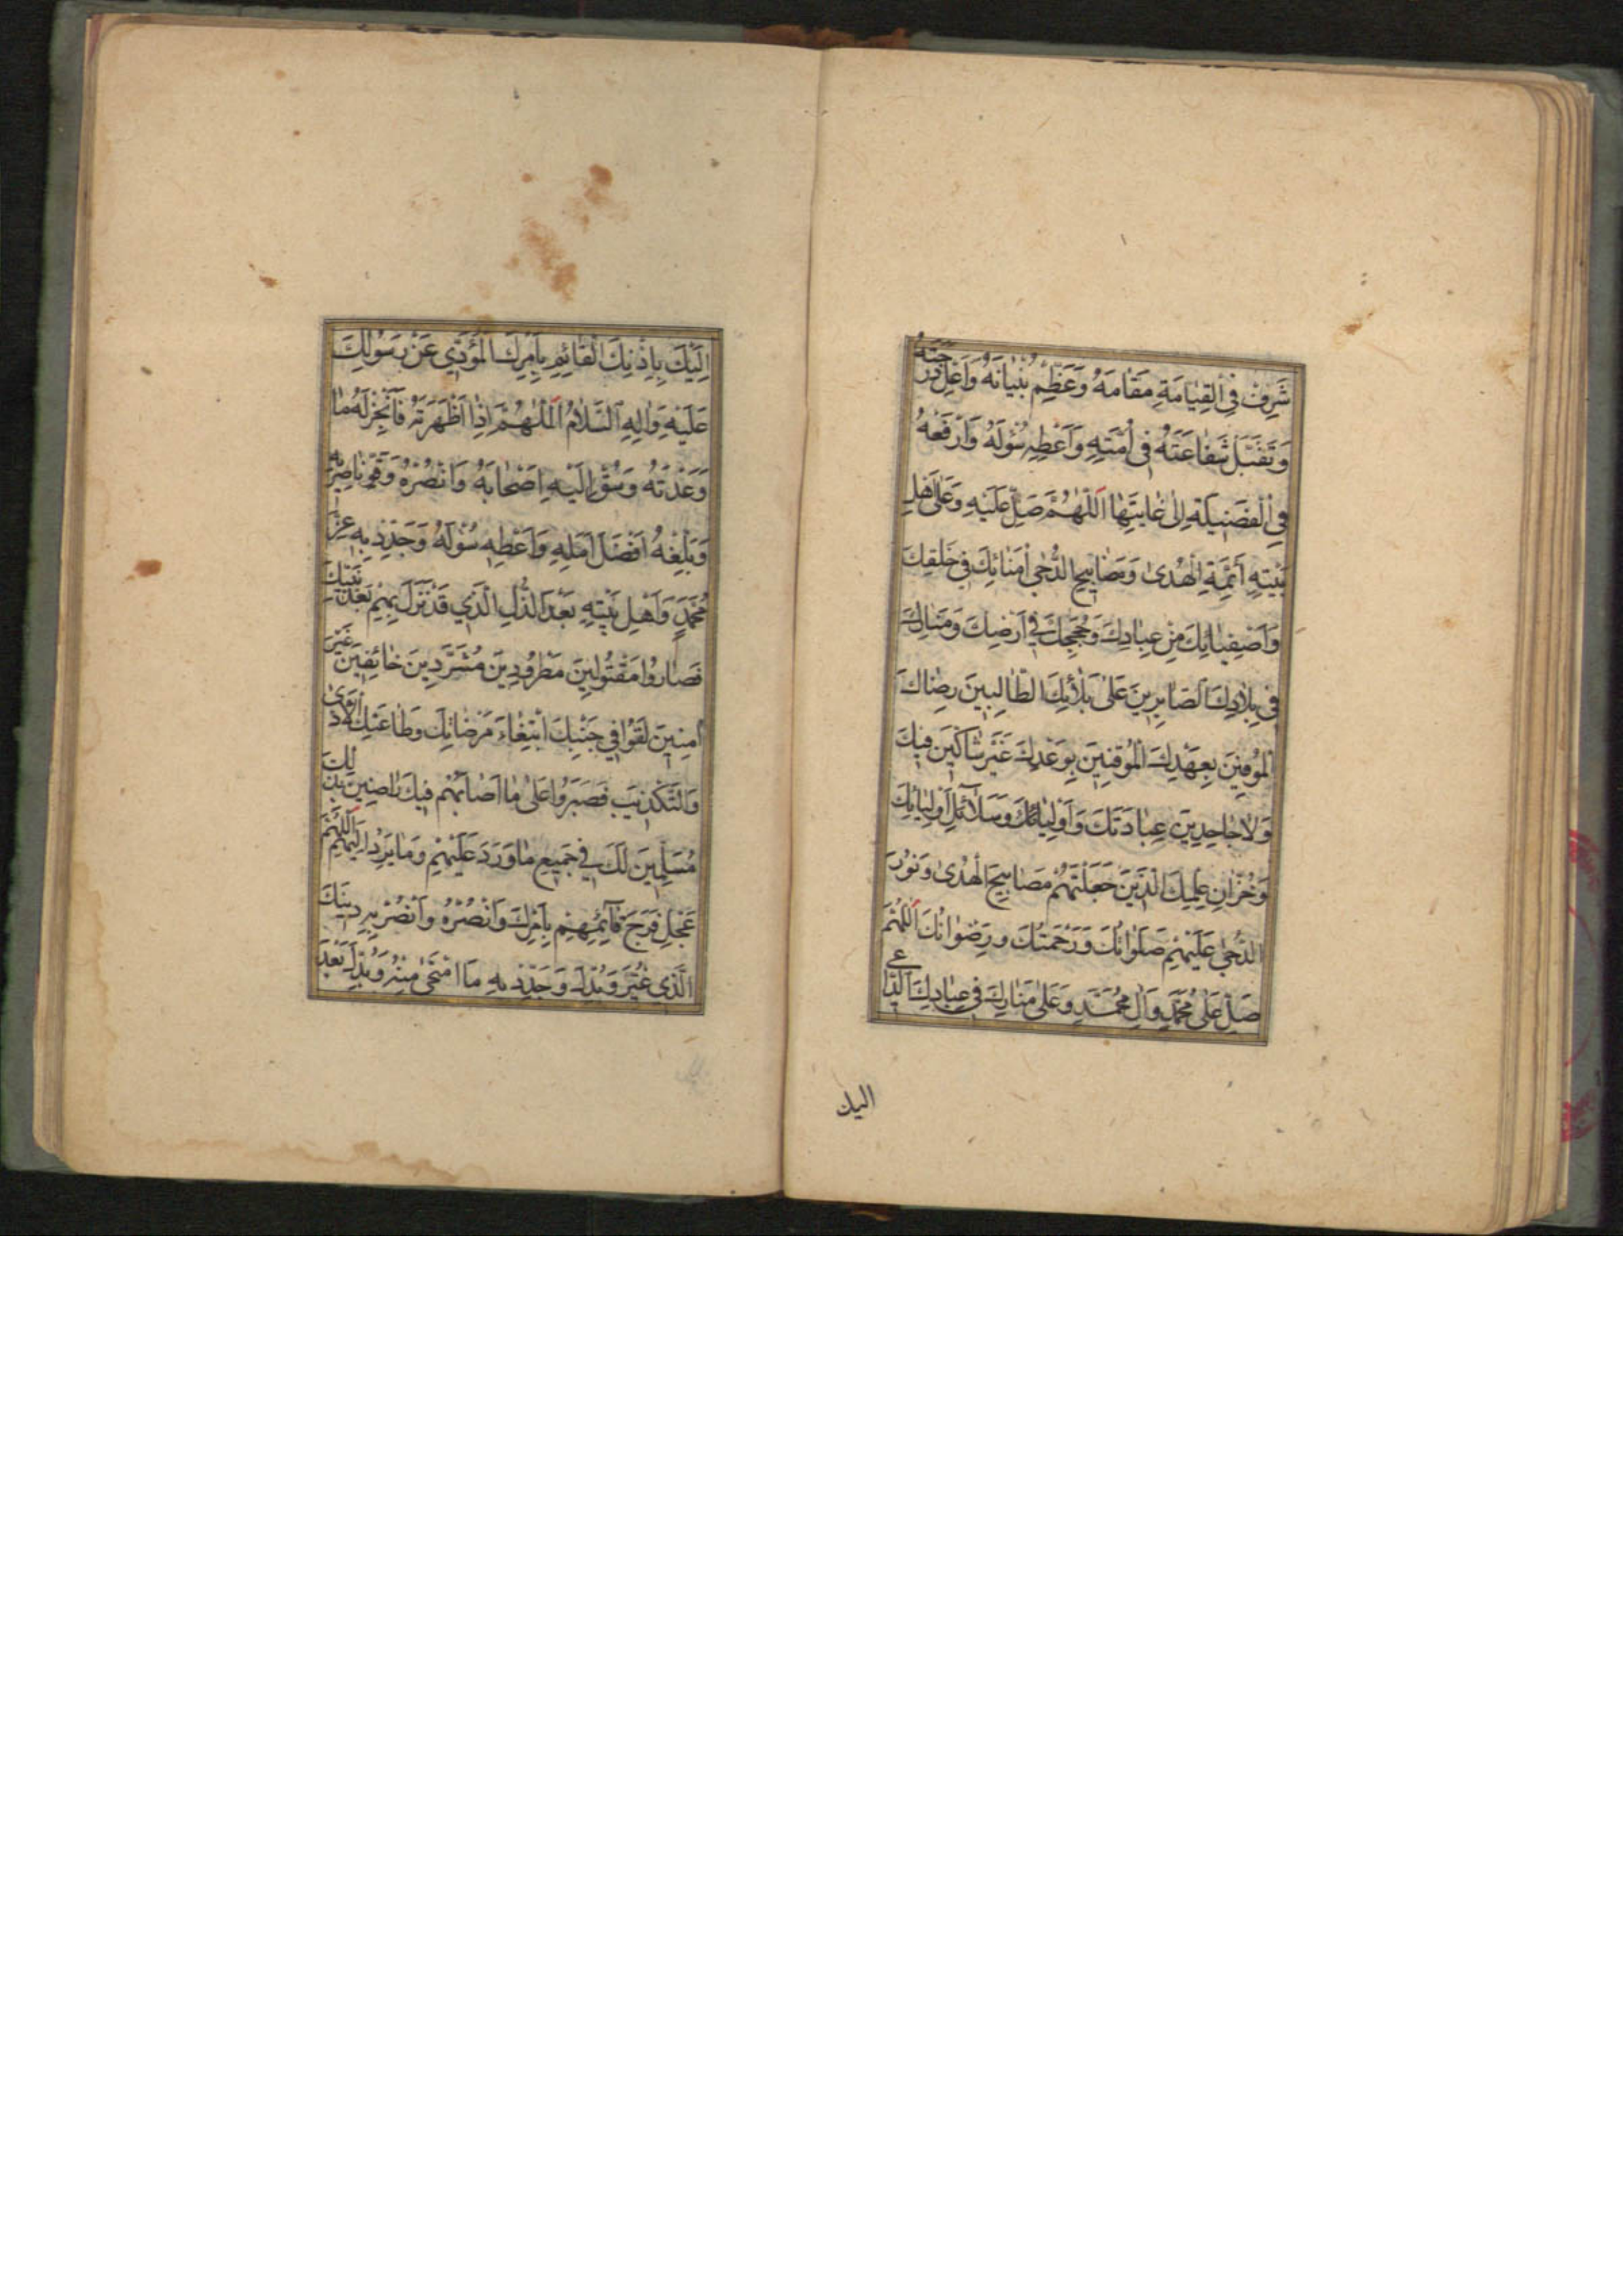 شَرِّفْ فِي الْقِيٰامَةِ مَقٰامَهُ وَعَظِّمْ بُنْيٰانَهُ وَاَعْلِ دَرَجَتَهُ
وَتَقَبَّلْ شَفٰاعَتَهُ فِي اُمَّتِهِ وَاَعْطِهِ سُؤْلَهُ وَارْفَعْهُ
فِي الْفَضِيلَةِ اِلىٰ غٰايَتِهٰا اَللّٰهُمَّ صَلِّ عَلَيْهِ وَعَلىٰ اَهْلِ
بَيْتِهِ اَئِمَّةِ الْهُدىٰ وَمَصٰابِيحِ الدُّجىٰ اُمَنٰائِكَ فِي خَلْقِكَ
وَاَصْفِيٰائِكَ مِنْ عِبٰادِكَ وَحُجَجِكَ فِي اَرْضِكَ وَمَنٰارِكَ
فِي بِلٰادِكَ الصّٰابِرِينَ عَلىٰ بَلٰائِكَ الطّٰالِبِينَ رِضٰاكَ
الْمُوفِينَ بِعَهْدِكَ الْمُوقِنِينَ بِوَعْدِكَ غَيْرَ شٰاكِّينَ فِيكَ
وَلٰا جٰاحِدِينَ عِبٰادَتَكَ وَاَوْلِيٰائِكَ وَسَلٰائِلِ اَوْلِيٰائِكَ
وَخُزّٰانِ عِلْمِكَ الَّذِينَ جَعَلْتَهُمْ مَصٰابِيحَ الْهُدىٰ وَنُورَ
الدُّجىٰ عَلَيْهِمْ صَلَوٰاتُكَ وَرَحْمَتُكَ وَرِضْوٰانُكَ اَللّٰهُمَّ
صَلِّ عَلىٰ مُحَمَّدٍ وَاٰلِ مُحَمَّدٍ وَعَلىٰ مَنٰارِكَ فِي عِبٰادِكَ الدّٰاعِي
اليك
اِلَيْكَ بِاِذْنِكَ الْقٰائِمِ بِاَمْرِكَ الْمُؤَدِّي عَنْ رَسُولِكَ
عَلَيْهِ وَاٰلِهِ السَّلٰامُ اَللّٰهُمَّ اِذٰا اَظْهَرْتَهُ فَاَنْجِزْ لَهُ مٰا
وَعَدْتَهُ وَسُقْ اِلَيْهِ اَصْحٰابَهُ وَانْصُرْهُ وَقَوِّ نٰاصِرِيهِ
وَبَلِّغْهُ اَفْضَلَ اَمَلِهِ وَاَعْطِهِ سُؤْلَهُ وَجَدِّدْ بِهِ عِزَّ
مُحَمَّدٍ وَاَهْلِ بَيْتِهِ بَعْدَ الذُّلِّ الَّذِي قَدْ نَزَلَ بِهِمْ بَعْدَ نَبِيِّكَ
فَصٰارُوا مَقْتُولِينَ مَطْرُودِينَ مُشَرَّدِينَ خٰائِفِينَ غَيْرَ
اٰمِنِينَ لَقُوا فِي جَنْبِكَ ابْتِغٰاءَ مَرْضٰاتِكَ وَطٰاعَتِكَ الْاَذىٰ
وَالتَّكْذِيبَ فَصَبَرُوا عَلىٰ مٰا اَصٰابَهُمْ فِيكَ رٰاضِينَ بِذٰلِكَ
مُسَلِّمِينَ لَكَ فِي جَمِيعِ مٰا وَرَدَ عَلَيْهِمْ وَمٰا يَرِدُ اِلَيْهِمْ اَللّٰهُمَّ
عَجِّلْ فَرَجَ قٰائِمِهِمْ بِاَمْرِكَ وَانْصُرْهُ وَانْصُرْ بِهِ دِينَكَ
الَّذِي غُيِّرَ وَبُدِّلَ وَجَدِّدْ بِهِ مَا امْتَحىٰ مِنْهُ وَبُدِّلَ بَعْدَ